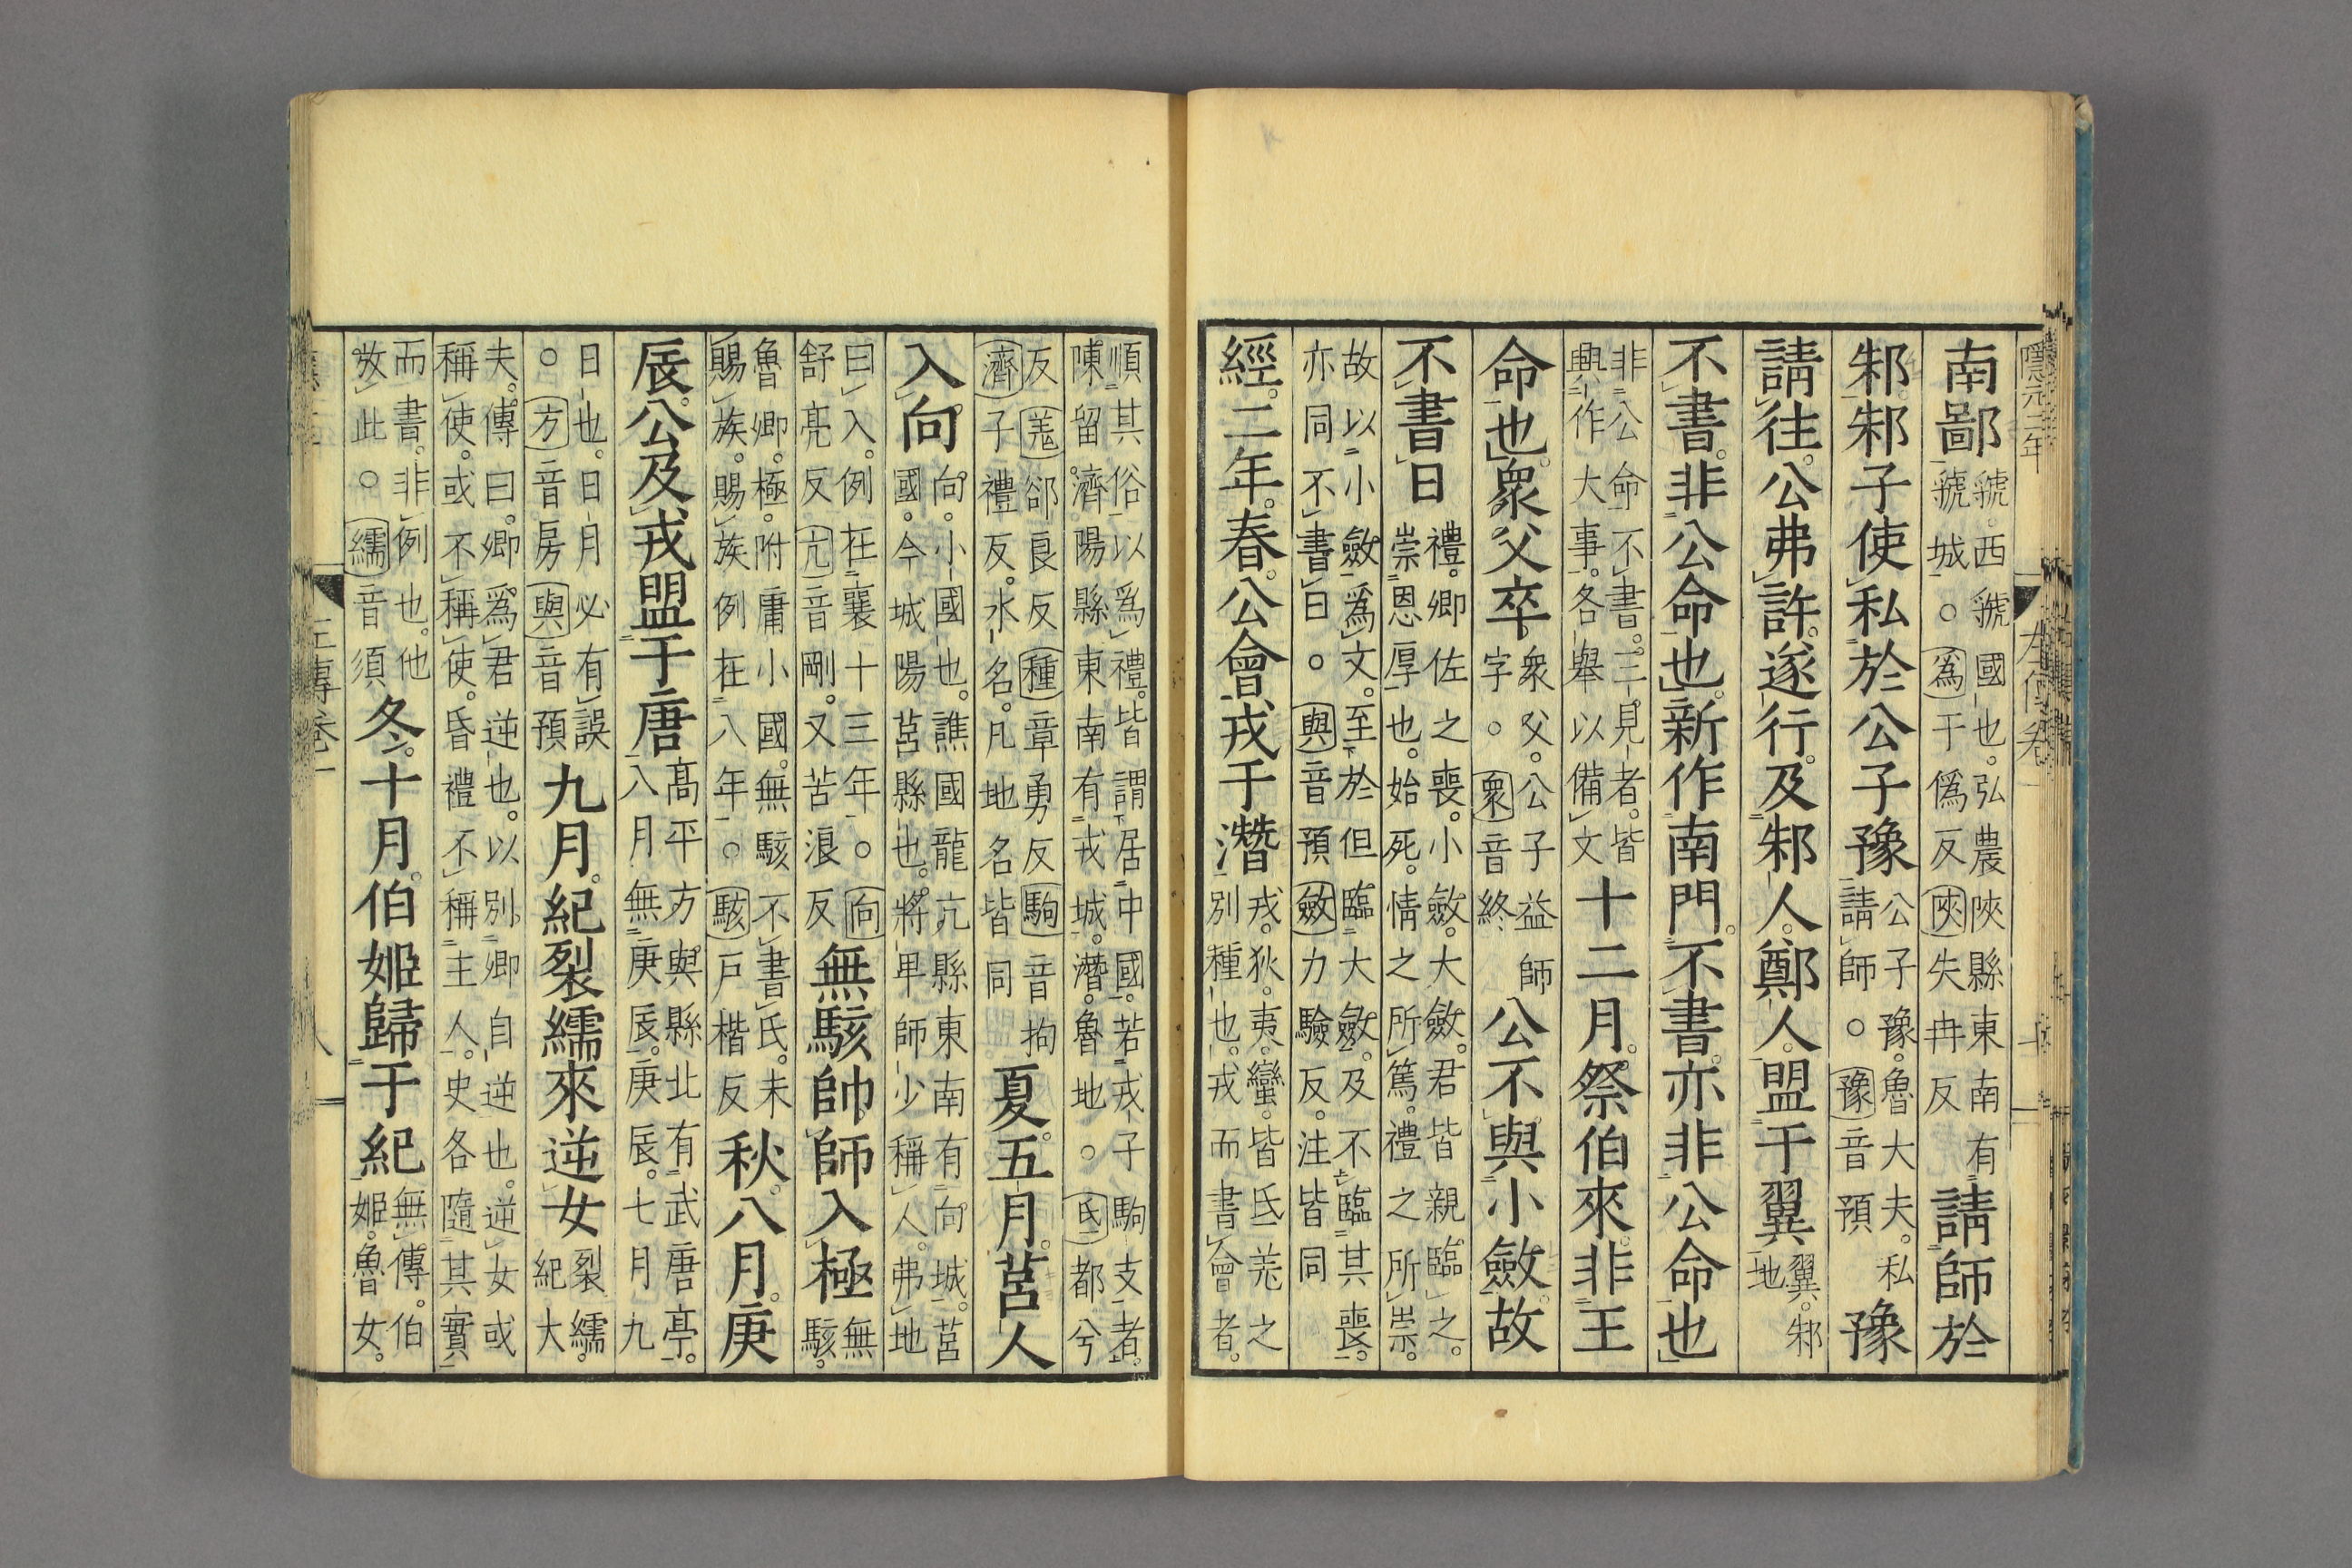 隱元二年
南鄙虢。西虢國也。弘農陝縣東南有虢城。○爲于僞反陝失冉反請師於
邾。邾子使私於公子豫公子豫。魯大夫。私請師○豫音預豫
請往。公弗許。遂行。及邾人。鄭人。盟于翼翼。邾地
不書。非公命也。新作南門。不書。亦非公命也
非公命不書。三見者。皆興作大事。各舉以備文十二月。祭伯來。非王
命也。衆父卒。衆父。公子益師字。○衆音終公不與小斂。故
不書日禮。卿佐之喪。小斂。大斂。君皆親臨之。崇恩厚也。始死。情之所篤。禮之所崇。
故以小斂爲文。至於但臨大斂。及不臨其喪。亦同不書日。○與音預斂力驗反。注皆同
經。二年。春。公會戎于潛戎。狄。夷。蠻。皆氐羌之別種也。戎而書會者。
順其俗以爲禮。皆謂居中國。若戎子駒支者。陳留。濟陽縣東南有戎城。潛。魯地。○氐都兮
反羌郤良反種章勇反駒音拘濟子禮反。水名。凡地名皆同夏。五月。莒人
入向向。小國也。譙國龍亢縣東南有向城。莒國。今城陽莒縣也。將卑師少稱人。弗地
曰入。例在襄十三年。○向舒亮反亢音剛。又苦浪反無駭帥師入極無駭。
魯卿。極。附庸小國。無駭不書氏。未賜族。賜族例在八年。○駭戶楷反秋。八月。庚
辰。公及戎盟于唐高平方與縣北有武唐亭。八月無庚辰。庚辰。七月九
日也。日月必有誤○方音房與音預九月。紀裂繻來逆女裂繻。紀大
夫。傳曰。卿爲君逆也。以別卿自逆也。逆女或稱使。或不稱使。昏禮不稱主人。史各隨其實
而書。非例也。他放此。○繻音須冬。十月。伯姬歸于紀無傳。伯姬。魯女。